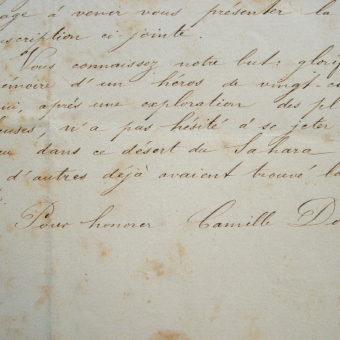 age à venir vous présenter la
scription ci jointe.
Vous connaissez notre but: glorif
émoire d'un héros de vingt-ci
ui, après une exploration des pl
euses, n'a pas hésité à se jeter
dans ce désert du Sahara
d'autres déjà avaient trouvé la
Pour honorer Camille Do